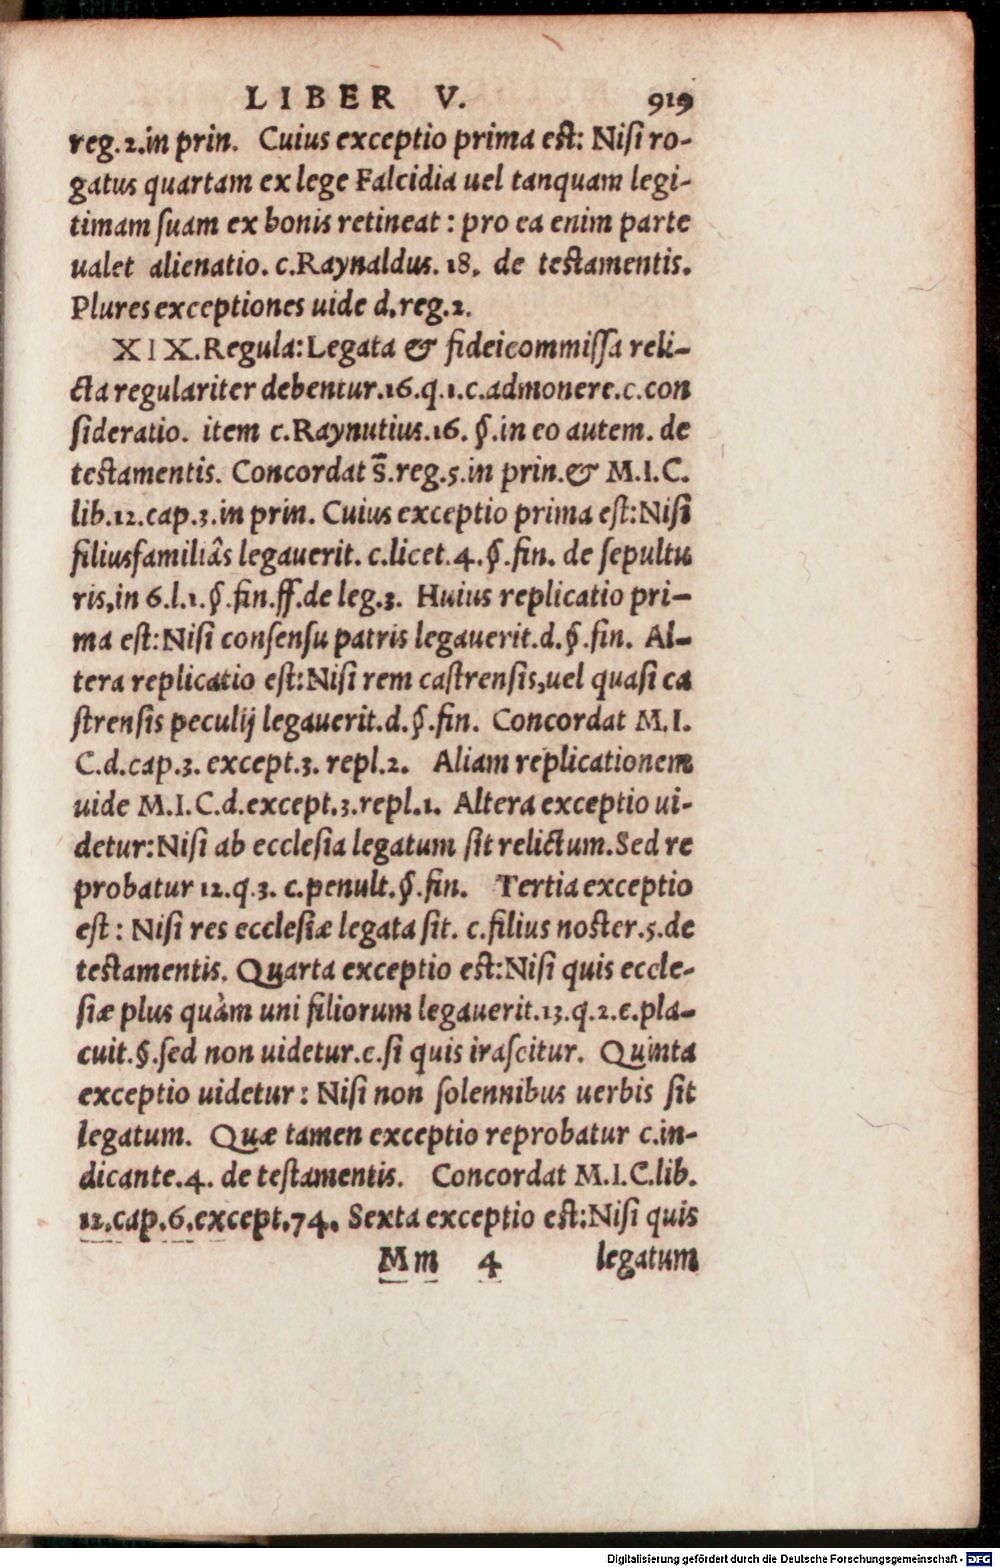 LIBER V. 919
reg.2.in prin. Cuius exceptio prima est: Nisi ro-
gatus quartam ex lege Falcidia uel tanquam legi-
timam suam ex bonis retineat : pro ea enim parte
ualet alienatio. c.Raynaldus. 18. de testamentis.
Plures exceptiones uide d.reg.2.
XIX.Regula:Legata & fideicommissa reli-
cta regulariter debentur.16.q.1.c.admonere.c.con
sideratio. item c.Raynutius.16. §.in eo autem. de
testamentis. Concordat s̄.reg.5.in prin.& M.I.C.
lib.12.cap.3.in prin. Cuius exceptio prima est:Nisi
filiusfamiliâs legauerit. c.licet.4.§.fin. de sepultu
ris,in 6.l.1.§.fin.ff.de leg.3. Huius replicatio pri-
ma est:Nisi consensu patris legauerit.d.§.fin. Al-
tera replicatio est:Nisi rem castrensis,uel quasi ca
strensis peculij legauerit.d.§.fin. Concordat M.I.
C.d.cap.3. except.3. repl.2. Aliam replicationem
uide M.I.C.d.except.3.repl.1. Altera exceptio ui-
detur:Nisi ab ecclesia legatum sit relictum.Sed re
probatur 12.q.3. c.penult.§.fin. Tertia exceptio
est : Nisi res ecclesiæ legata sit. c.filius noster.5.de
testamentis. Quarta exceptio est:Nisi quis eccle-
siæ plus quàm uni filiorum legauerit.13.q.2.c.pla-
cuit.§.sed non uidetur.c.si quis irascitur. Quinta
exceptio uidetur : Nisi non solennibus uerbis sit
legatum. Quæ tamen exceptio reprobatur c.in-
dicante.4. de testamentis. Concordat M.I.C.lib.
12.cap.6.except.74. Sexta exceptio est:Nisi quis
Mm 4 legatum
Digitalisierung gefördert durch die Deutsche Forschungsgemeinschaft - DFG